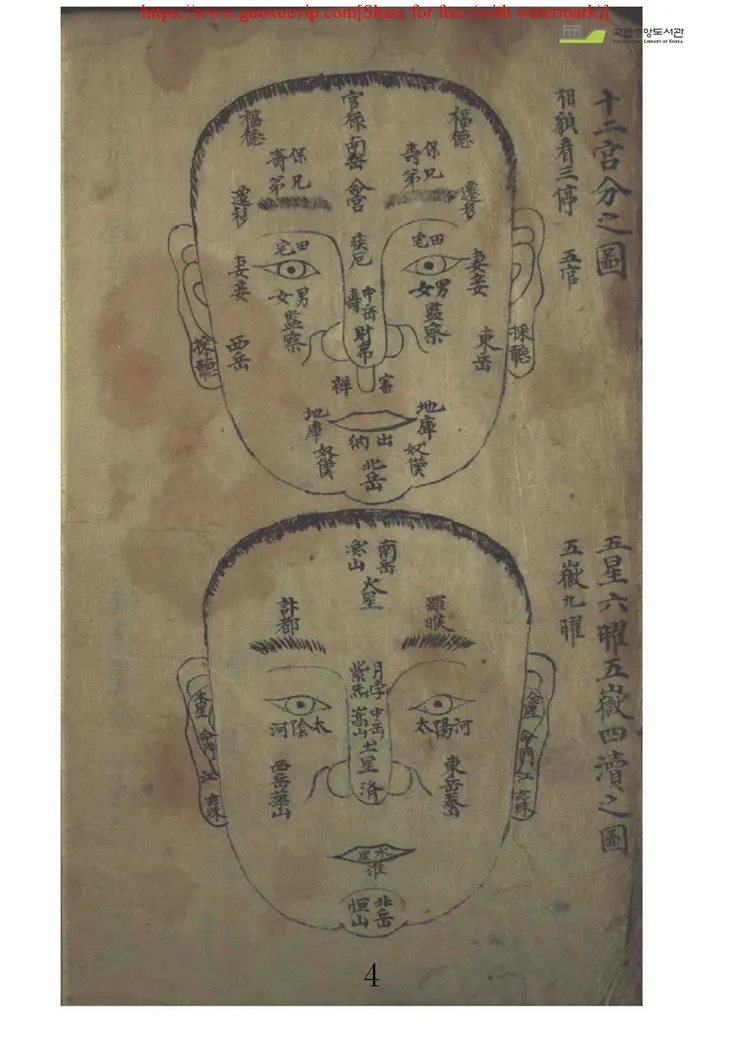 https://www.guoxuevip.com[Share for free (with watermark)]
국립중앙도서관
THE NATIONAL LIBRARY OF KOREA
十二宮分之圖
相貌看三停 五官
官禄
南岳
命宮
福德
福德
保壽
兄弟
保壽
兄弟
遷移
遷移
疾厄
田宅
田宅
妻妾
妻妾
男女
男女
中岳
壽
財帛
監察
監察
東岳
西岳
採聽
採聽
審辨
地庫
地庫
出納
奴僕
奴僕
北岳
五星六曜五嶽四瀆之圖
五嶽九曜
南岳
火星
羅睺
計都
月孛
紫炁
中岳
嵩山
土星
濟
太陽河
太陰河
東岳泰山
西岳華山
金星
命門
江
木星
命門
江
水星
淮
北岳
恒山
4